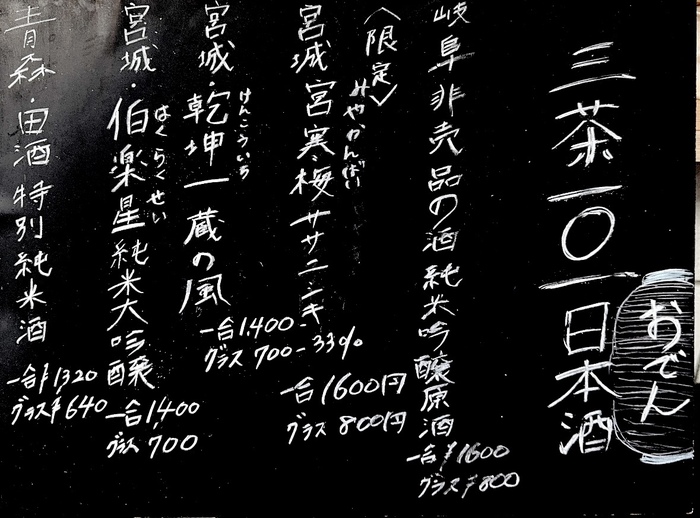 三茶一〇一日本酒
おでん
岐阜 非売品の酒 純米吟醸原酒
一合¥1600
グラス¥800
〈限定〉
宮城 宮寒梅 ササニシキ
みやかんばい
一合1600円
グラス 800円
宮城・乾坤一 蔵の風
けんこういち
一合1.400-
グラス 700-33%
宮城・伯楽星 純米大吟醸
はくらくせい
一合1400
グラス 700
青森・田酒 特別純米酒
一合¥1320
グラス¥640